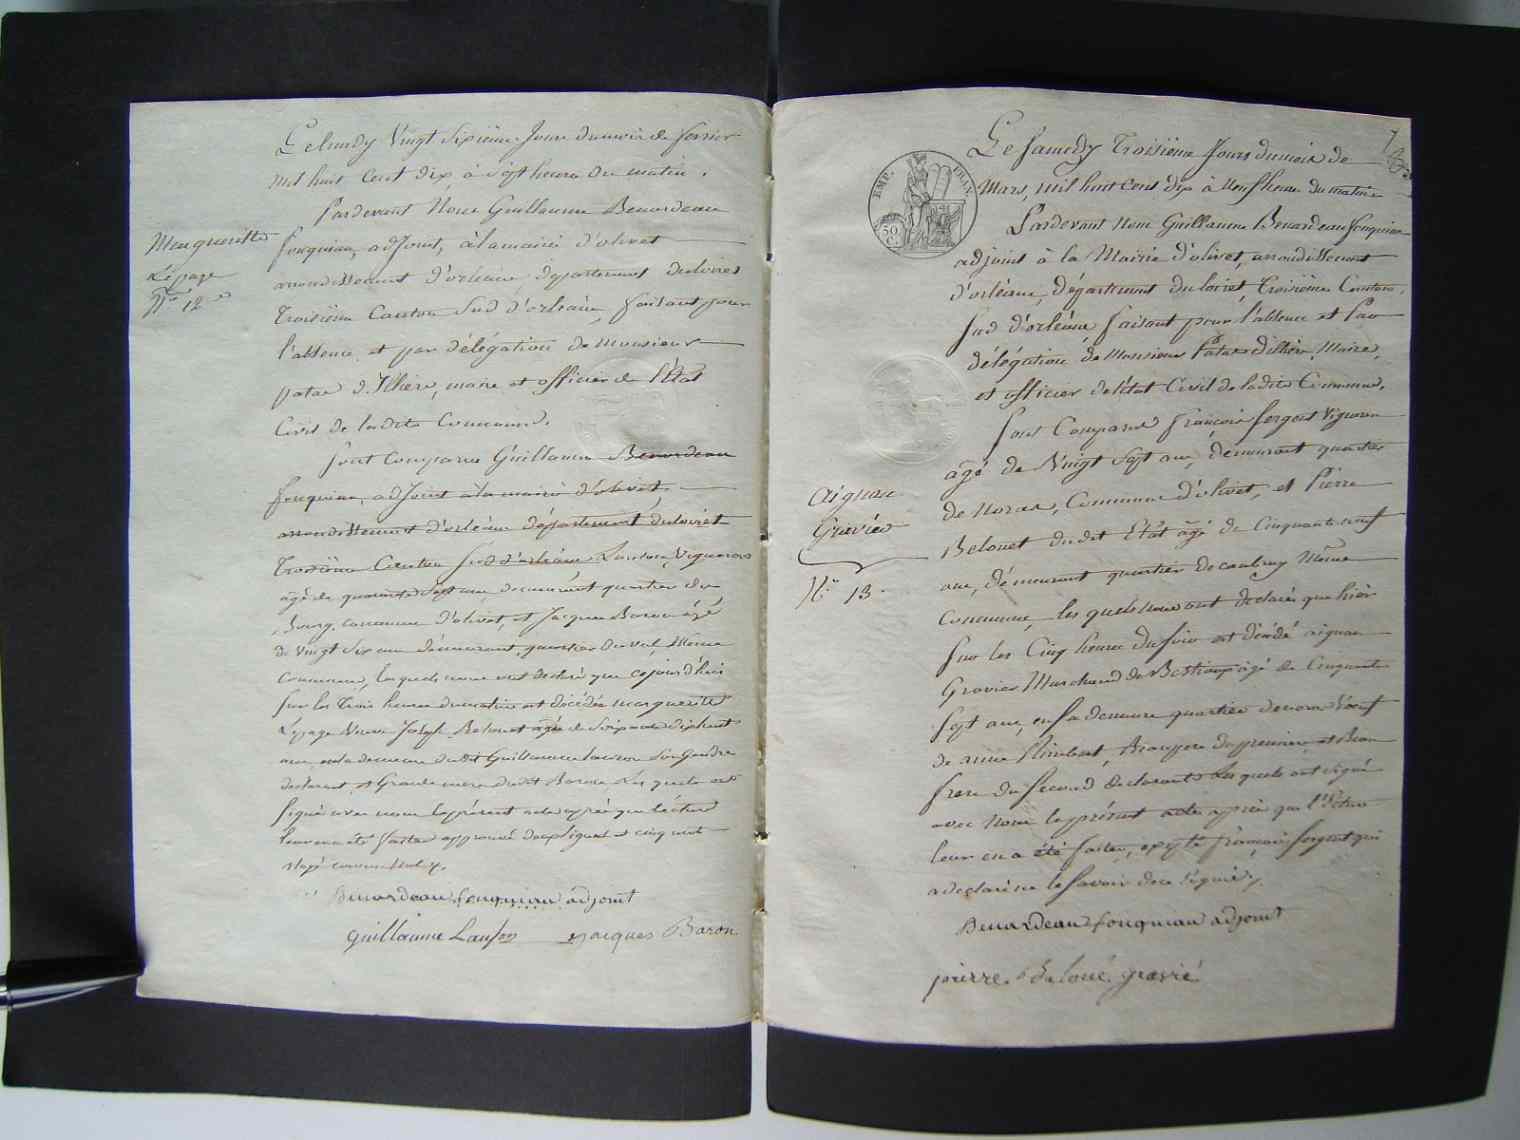 Le lundy Vingt Sixième Jour du mois de fevrier
mil huit Cent dix à Sept heures du matin.
Pardevant Nous Guillaume Benardeau
fouquiau, adjoint, à la mairie d'olivet
arrondissement d'orléans, département du loiret
Troisième Canton Sud d'orléans, faisant pour
l'absence et par délégation de Monsieur
patas d'Illiers, maire et officier de l'État
Civil de la dite Commune.
Margueritte
Lépage
N.º 12
Sont Comparus Guillaume Benardeau
fouquiau, adjoint à la mairie d'olivet,
arrondissement d'orléans département du loiret
Troisième Canton Sud d'orléans Vigneron
âgé de quarante sept ans demeurant quartier du
Bourg, commune d'olivet, et Jacques Baron âgé
de Vingt Six ans demeurant, quartier du Même
Commune, lesquels nous ont declaré que cejourd'hui
Sur les Trois heures du matin est décédée marguerite
Lepage Veuve Joseph agée de Soixante dixhuit
ans, en la demeure dudit Guillaume Son Gendre
declarant et Grande mere dudit Baron Les quels ont
Signé avec nous le présent acte après que lecture
leur en a été faitte approuvé lignes et cinq mots
rayé comme nuls.
Benardeau fouquiau adjoint
Guillaume Jacques Baron
7
EMP. FRAN.
50
C.
Le Samedy Troisième Jours du mois de
Mars, mil huit Cent dix à Neuf heures du matin
Pardevant Nous Guillaume Benardeau fouquiau
adjoint à la Mairie d'olivet, arrondissement
d'orléans, département du loiret, Troisième Canton,
Sud d'orléans faisant pour l'absence et Par
délégation de Monsieur Patas d'illiers, Maire,
et officier de l'état Civil de la dite Commune.
Sont Comparus François Sergent Vigneron
âgé de Vingt Sept ans, demeurant quartier
de Noras, Commune d'olivet, et Pierre
Belouet dudit Etat âgé de Cinquante neuf
ans, demeurant quartier de Même
Commune, les quels nous ont declarés que hier
Sur les Cinq heures du Soir est décédé aignan
Gravier Marchand de Bestiaux âgé de Cinquante
Sept ans, en Sa demeure quartier de noras Veuf
de anne Beaupere du premier et Beau
frere du Second declarants Les quels ont Signé
avec Nous le présent acte après que l'ecture
leur en a été faitte, excepté françois Sergent qui
a declaré ne le Savoir de ce requis.
aignan
Gravier
N.º 13.
Benardeau fouquiau adjoint
pierre Beloué gravié